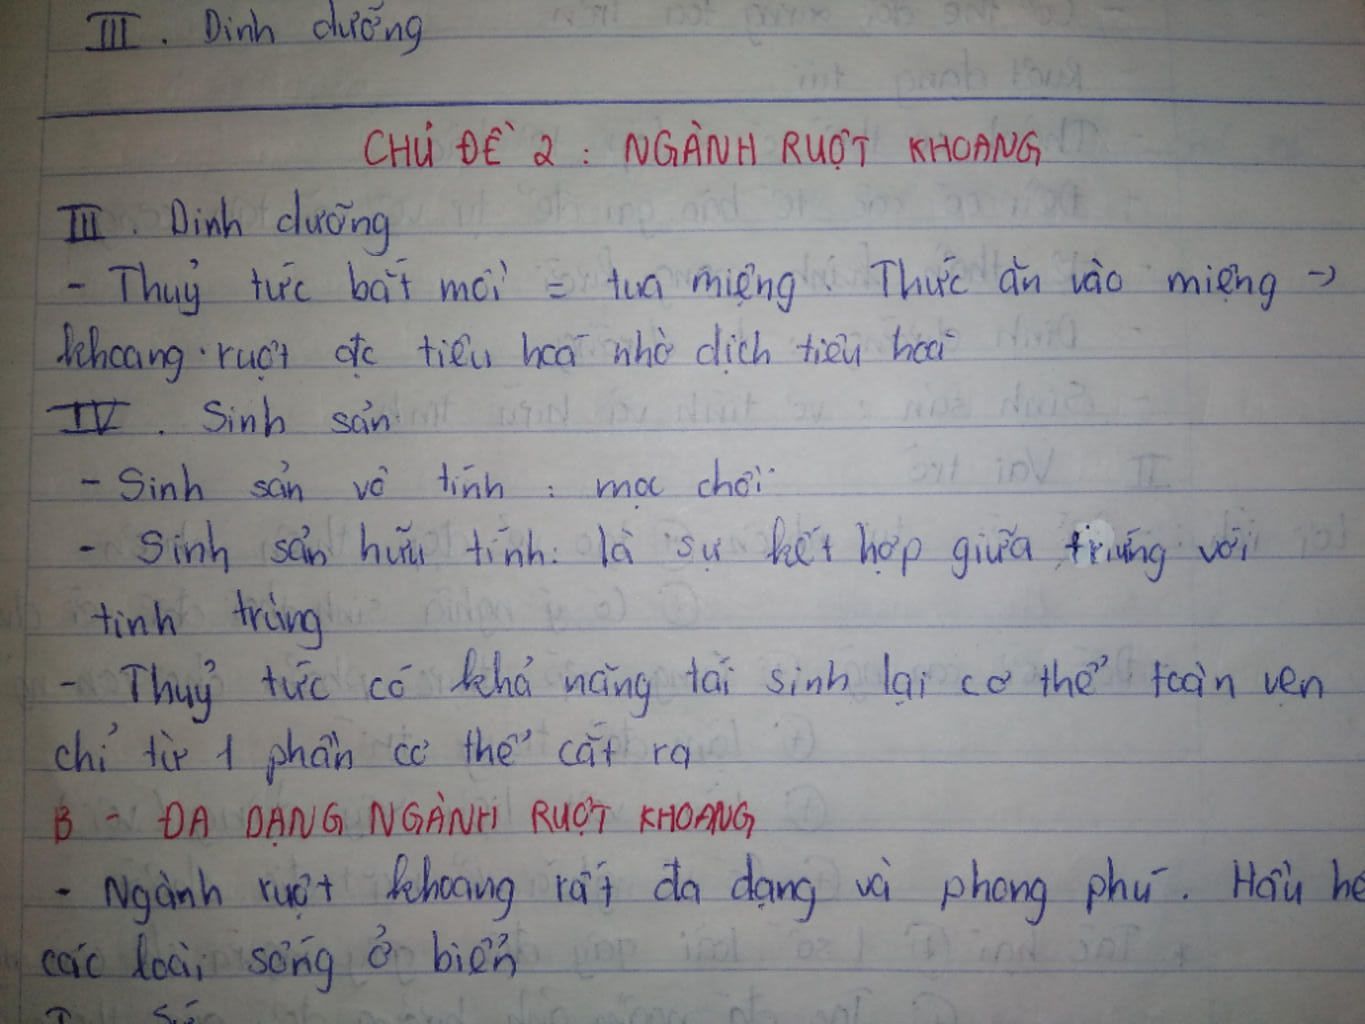 III. Dinh dưỡng
CHỦ ĐỀ 2 : NGÀNH RUỘT KHOANG
III. Dinh dưỡng
- Thuỷ tức bắt mồi = tua miệng. Thức ăn vào miệng →
khoang ruột đc tiêu hoá nhờ dịch tiêu hoá
IV. Sinh sản
- Sinh sản vô tính : mọc chồi
- Sinh sản hữu tính: là sự kết hợp giữa trứng với
tinh trùng
- Thuỷ tức có khả năng tái sinh lại cơ thể toàn vẹn
chỉ từ 1 phần cơ thể cắt ra
B - ĐA DẠNG NGÀNH RUỘT KHOANG
- Ngành ruột khoang rất đa dạng và phong phú. Hầu hế
các loài sống ở biển